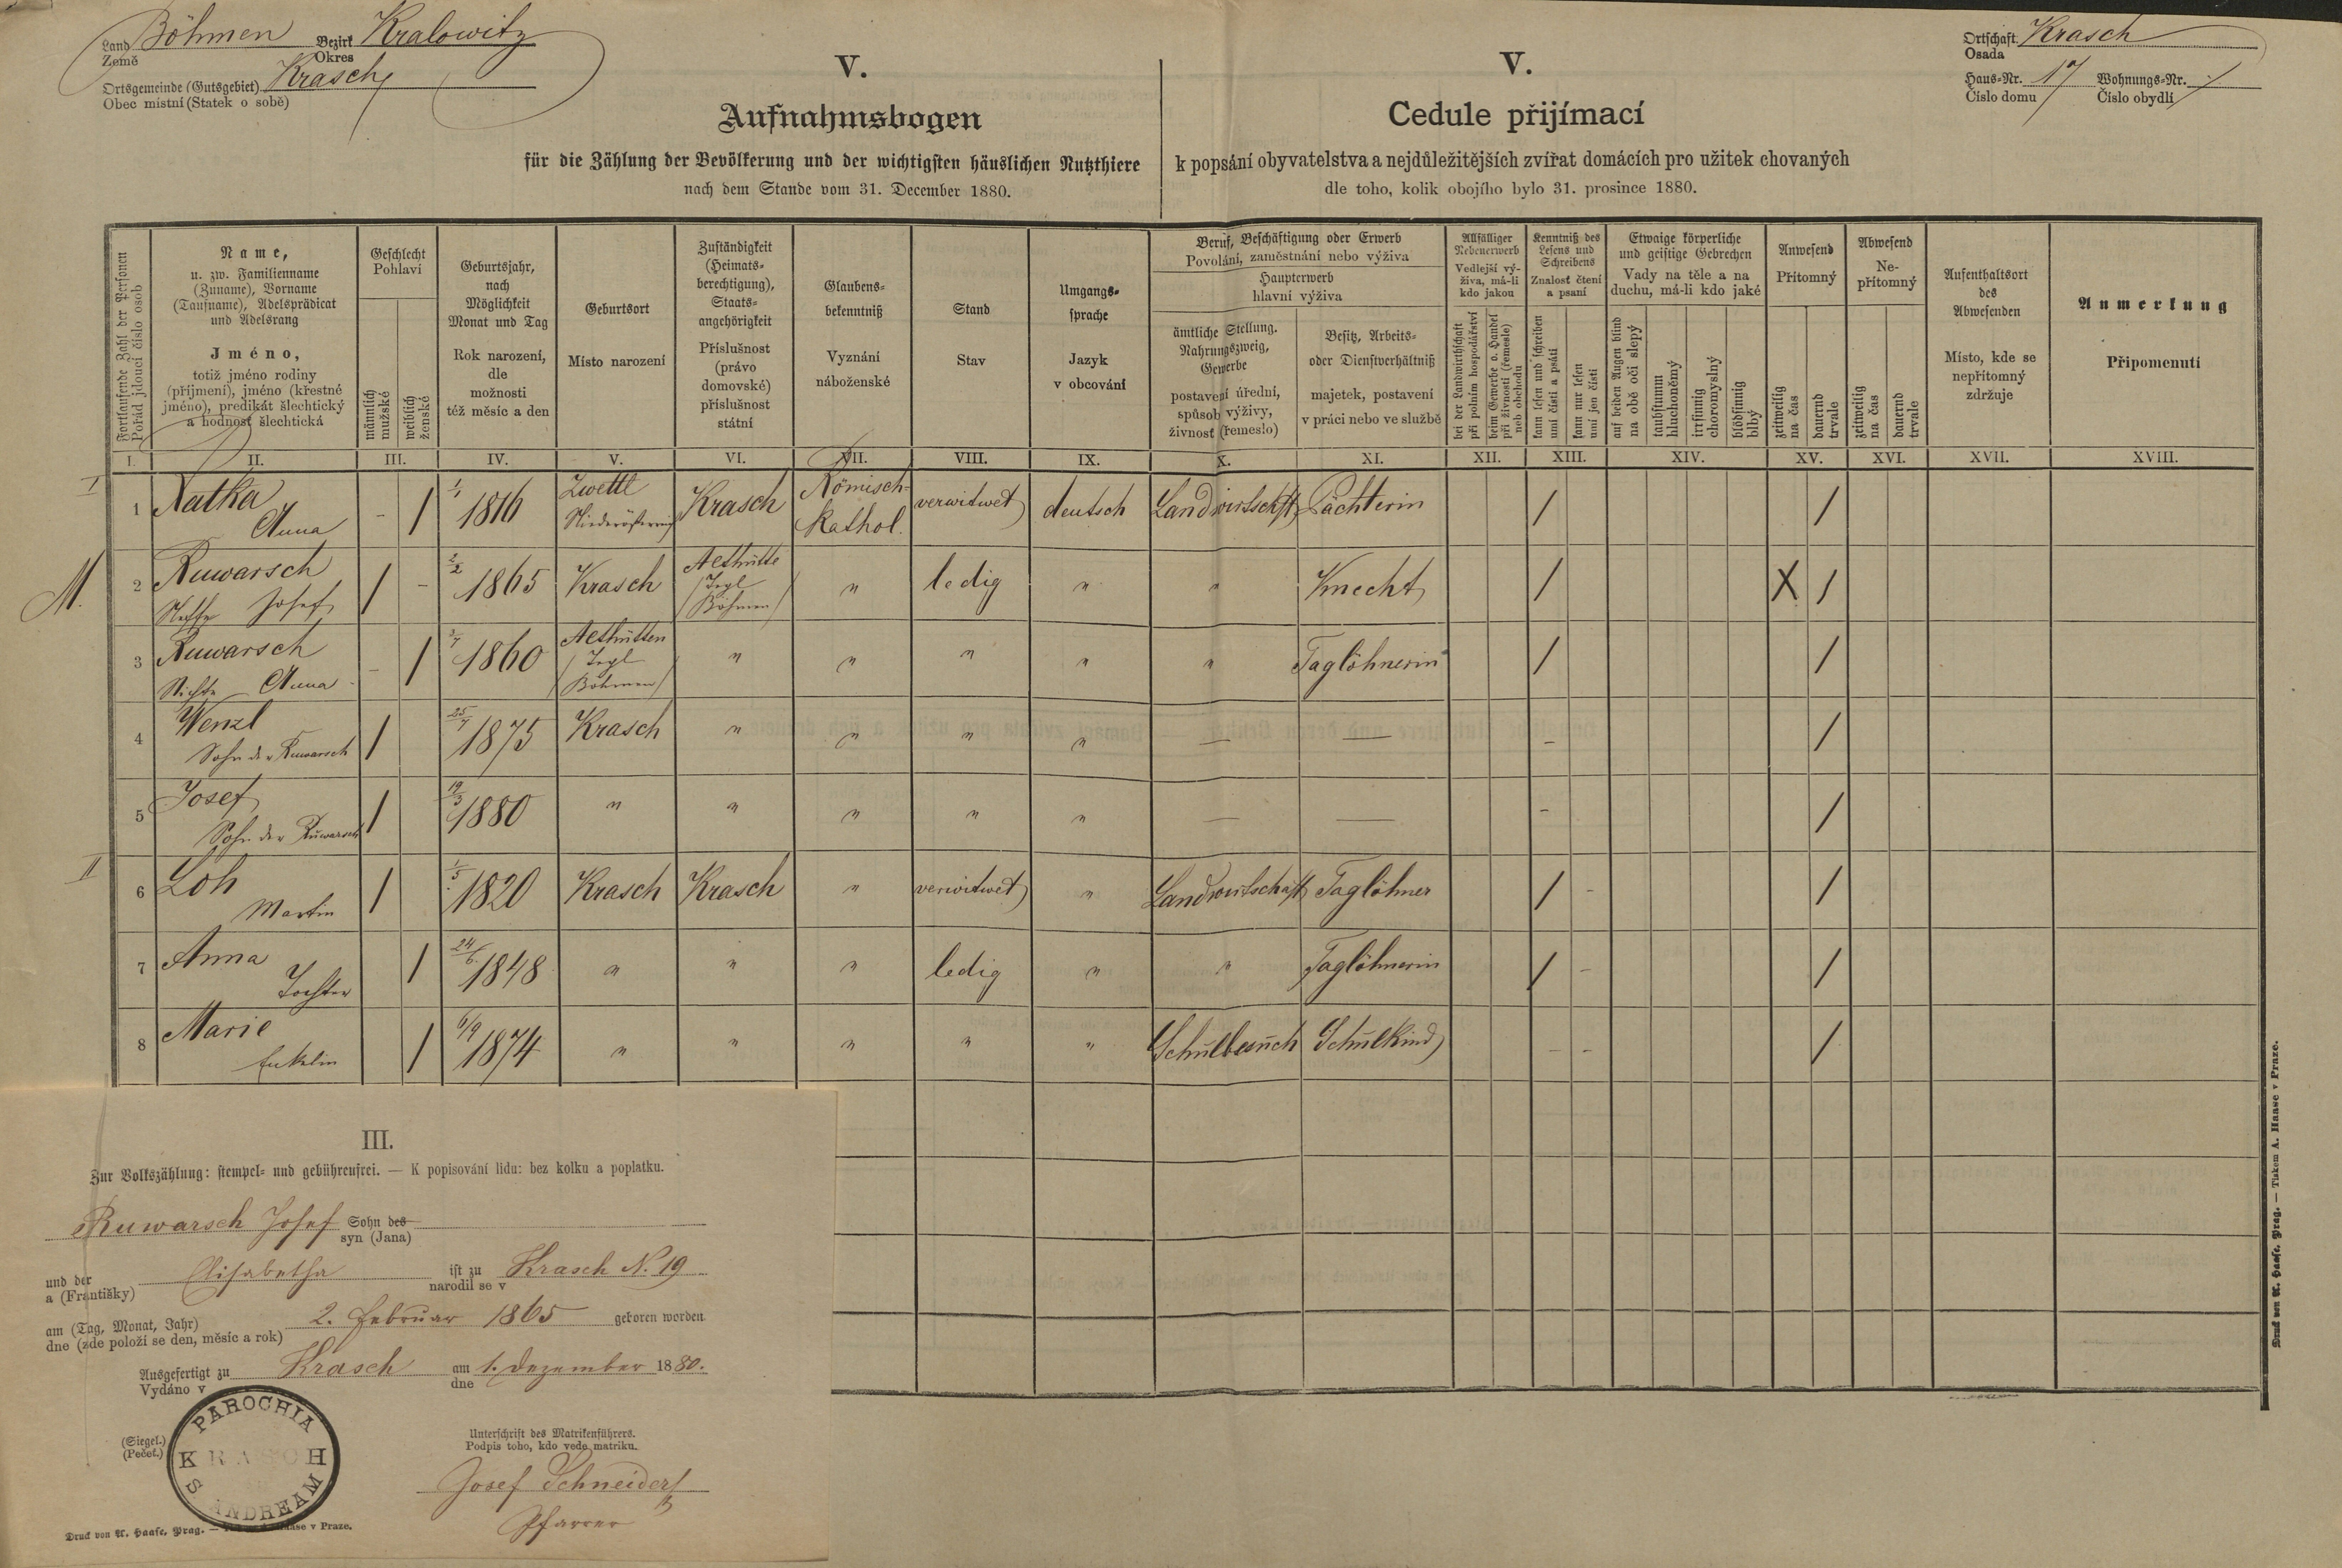 Land Böhmen Bezirk Kralowitz
Země Okres
Ortsgemeinde (Gutsgebiet) Krasch
Obec místní (Statek o sobě)
V.
Aufnahmsbogen
für die Zählung der Bevölkerung und der wichtigsten häuslichen Nutzthiere
nach dem Stande vom 31. December 1880.
V.
Cedule přijímací
k popsání obyvatelstva a nejdůležitějších zvířat domácích pro užitek chovaných
dle toho, kolik obojího bylo 31. prosince 1880.
Ortschaft Krasch
Osada
Haus-Nr. 17 Wohnungs-Nr. /
Číslo domu Číslo obydlí
Fortlaufende Zahl der Personen
Pořád jdoucí číslo osob
Name,
u. zw. Familienname
(Zuname), Vorname
(Taufname), Adelsprädicat
und Adelsrang
Jméno,
totiž jméno rodiny
(příjmení), jméno (křestné
jméno), predikát šlechtický
a hodnost šlechtická
Geschlecht
Pohlaví
männlich
mužské
weiblich
ženské
Geburtsjahr,
nach
Möglichkeit
Monat und Tag
Rok narození,
dle
možnosti
též měsíc a den
Geburtsort
Místo narození
Zuständigkeit
(Heimats-
berechtigung),
Staats-
angehörigkeit
Příslušnost
(právo
domovské)
příslušnost
státní
Glaubens-
bekenntniß
Vyznání
náboženské
Stand
Stav
Umgangs-
sprache
Jazyk
v obcování
Beruf, Beschäftigung oder Erwerb
Povolání, zaměstnání nebo výživa
Haupterwerb
hlavní výživa
ämtliche Stellung.
Nahrungszweig,
Gewerbe
postavení úřední,
spůsob výživy,
živnost (řemeslo)
Besitz, Arbeits-
oder Dienstverhältniß
majetek, postavení
v práci nebo ve službě
Allfälliger
Nebenerwerb
Vedlejší vý-
živa, má-li
kdo jakou
bei der Landwirthschaft
při polním hospodářství
beim Gewerbe o. Handel
při živnosti (řemesle)
neb obchodu
Kenntniß des
Lesens und
Schreibens
Znalost čtení
a psaní
kann lesen und schreiben
umí čísti a psáti
kann nur lesen
umí jen čísti
Etwaige körperliche
und geistige Gebrechen
Vady na těle a na
duchu, má-li kdo jaké
auf beiden Augen blind
na obě oči slepý
taubstumm
hluchoněmý
irrsinnig
choromyslný
blödsinnig
blbý
Anwesend
Přítomný
zeitweilig
na čas
dauernd
trvale
Abwesend
Ne-
přítomný
zeitweilig
na čas
dauernd
trvale
Aufenthaltsort
des
Abwesenden
Místo, kde se
nepřítomný
zdržuje
Anmerkung
Připomenutí
I. II. III. IV. V. VI. VII. VIII. IX. X. XI. XII. XIII. XIV. XV. XVI. XVII. XVIII.
I 1 Natka Anna - / 1/1 1816 Zwettl Niederösterreich Krasch Römisch-kathol. verwitwet deutsch Landwirtschaft Pächterin / /
M. 2 Ruwarsch Neffe Josef / - 2/2 1865 Krasch Althütte (Irgl Böhmen) " ledig " " Knecht / X /
3 Ruwarsch Nichte Anna - / 1860 Althütten (Irgl Böhmen) " " " " " Taglöhnerin / /
4 Wenzl Sohn der Ruwarsch / 25/7 1875 Krasch " " " " — — - /
5 Josef Sohn der Ruwarsch / 19/3 1880 " " " " " — — - /
II 6 Loh Martin / 1/5 1820 Krasch Krasch " verwitwet " Landwirtschaft Taglöhner / - /
7 Anna Tochter / 24/6 1848 " " " ledig " " Taglöhnerin / - /
8 Marie Enkelin / 6/9 1874 " " " " " Schulbesuch Schulkind - - /
III.
Zur Volkszählung: stempel- und gebührenfrei. — K popisování lidu: bez kolku a poplatku.
Ruwarsch Josef Sohn des
syn (Jana)
und der Elisabetha ist zu Krasch N. 19
a (Františky) narodil se v
am (Tag, Monat, Jahr) 2. Februar 1865 geboren worden
dne (zde položí se den, měsíc a rok)
Ausgefertigt zu Krasch am 1. Dezember 1880.
Vydáno v dne
(Siegel.)
(Pečeť.)
PAROCHIA
KRASCH
S ANDREAM
Unterschrift des Matrikenführers.
Podpis toho, kdo vede matriku.
Josef Schneider
Pfarrer
Druck von A. Haase, Prag. — Tiskem A. Haase v Praze.
Druck von A. Haase, Prag. — Tiskem A. Haase v Praze.